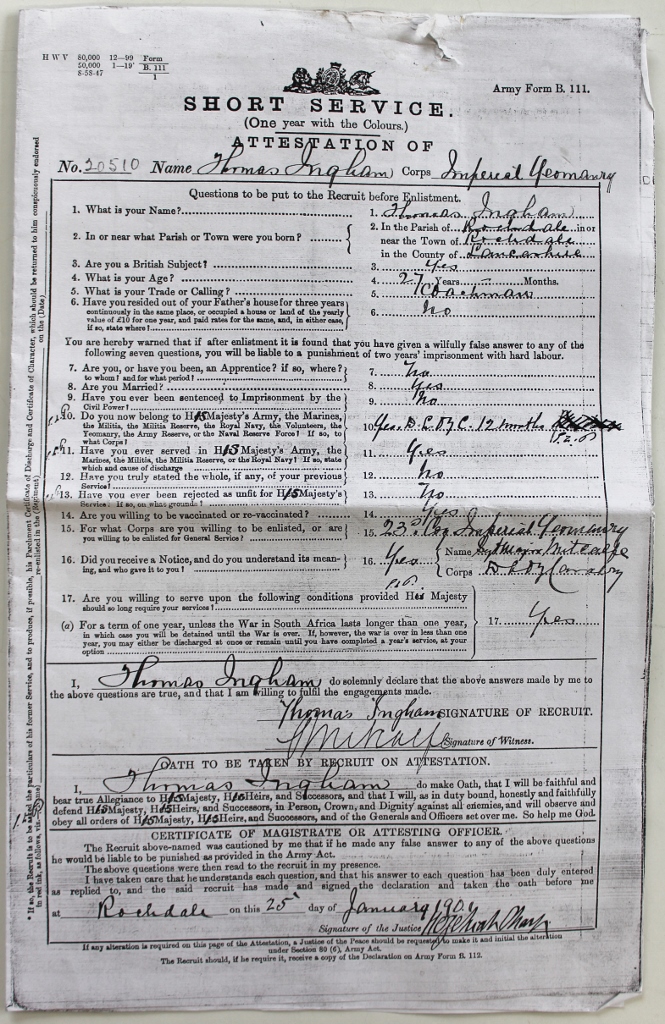 H W V 80,000 12—99 Form
50,000 1—19 B. 111
8-58-47 1
Army Form B. 111.
SHORT SERVICE.
(One year with the Colours.)
ATTESTATION OF
No. 20510 Name Thomas Ingham Corps Imperial Yeomanry
Questions to be put to the Recruit before Enlistment.
1. What is your Name? 1. Thomas Ingham
2. In or near what Parish or Town were you born? 2. In the Parish of Rochdale in or
near the Town of Rochdale
in the County of Lancashire
3. Are you a British Subject? 3. Yes
4. What is your Age? 4. 27 Years — Months.
5. What is your Trade or Calling? 5. Coachman
6. Have you resided out of your Father's house for three years 6. No
continuously in the same place, or occupied a house or land of the yearly
value of £10 for one year, and paid rates for the same, and, in either case,
if so, state where?
You are hereby warned that if after enlistment it is found that you have given a wilfully false answer to any of the
following seven questions, you will be liable to a punishment of two years' imprisonment with hard labour.
7. Are you, or have you been, an Apprentice? if so, where? 7. No
to whom? and for what period?
8. Are you Married? 8. Yes
9. Have you ever been sentenced to Imprisonment by the 9. No
Civil Power?
10. Do you now belong to His Majesty's Army, the Marines, 10. Yes. D.L.O.Y.C. 12 months
the Militia, the Militia Reserve, the Royal Navy, the Volunteers, the
Yeomanry, the Army Reserve, or the Naval Reserve Force? If so, to
what Corps?
11. Have you ever served in His Majesty's Army, the 11. Yes
Marines, the Militia, the Militia Reserve, or the Royal Navy? If so, state
which and cause of discharge
12. Have you truly stated the whole, if any, of your previous 12. No
Service?
13. Have you ever been rejected as unfit for His Majesty's 13. No
Service? If so, on what grounds?
14. Are you willing to be vaccinated or re-vaccinated? 14. Yes
15. For what Corps are you willing to be enlisted, or are 15. 23rd Coy Imperial Yeomanry
you willing to be enlisted for General Service?
16. Did you receive a Notice, and do you understand its mean- 16. Yes Name Metcalfe
ing, and who gave it to you? Corps
17. Are you willing to serve upon the following conditions provided His Majesty
should so long require your services?
(a) For a term of one year, unless the War in South Africa lasts longer than one year, 17. Yes
in which case you will be detained until the War is over. If, however, the war is over in less than one
year, you may either be discharged at once or remain until you have completed a year's service, at your
option
I, Thomas Ingham do solemnly declare that the above answers made by me to
the above questions are true, and that I am willing to fulfil the engagements made.
Thomas Ingham SIGNATURE OF RECRUIT.
Metcalfe Signature of Witness.
OATH TO BE TAKEN BY RECRUIT ON ATTESTATION.
I, Thomas Ingham do make Oath, that I will be faithful and
bear true Allegiance to His Majesty, His Heirs, and Successors, and that I will, as in duty bound, honestly and faithfully
defend His Majesty, His Heirs, and Successors, in Person, Crown, and Dignity against all enemies, and will observe and
obey all orders of His Majesty, His Heirs, and Successors, and of the Generals and Officers set over me. So help me God.
CERTIFICATE OF MAGISTRATE OR ATTESTING OFFICER.
The Recruit above-named was cautioned by me that if he made any false answer to any of the above questions
he would be liable to be punished as provided in the Army Act.
The above questions were then read to the recruit in my presence.
I have taken care that he understands each question, and that his answer to each question has been duly entered
as replied to, and the said recruit has made and signed the declaration and taken the oath before me
at Rochdale on this 25 day of January 1901
Signature of the Justice
If any alteration is required on this page of the Attestation, a Justice of the Peace should be requested to make it and initial the alteration
under Section 80 (6), Army Act.
The Recruit should, if he require it, receive a copy of the Declaration on Army Form B. 112.
* If so, the Recruit is to be asked the particulars of his former Service, and to produce, if possible, his Parchment Certificate of Discharge and Certificate of Character, which should be returned to him conspicuously endorsed
in red ink, as follows, viz. re-enlisted in the (Regiment) on the (Date)